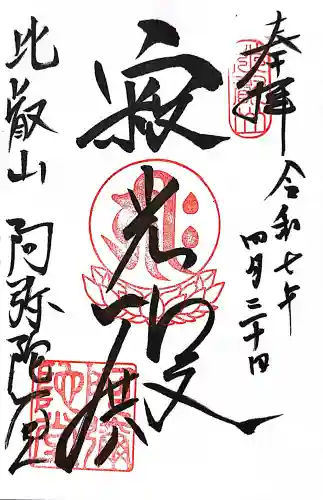 奉拝
令和七年
四月三十日
寂光殿
比叡山
阿弥陀堂